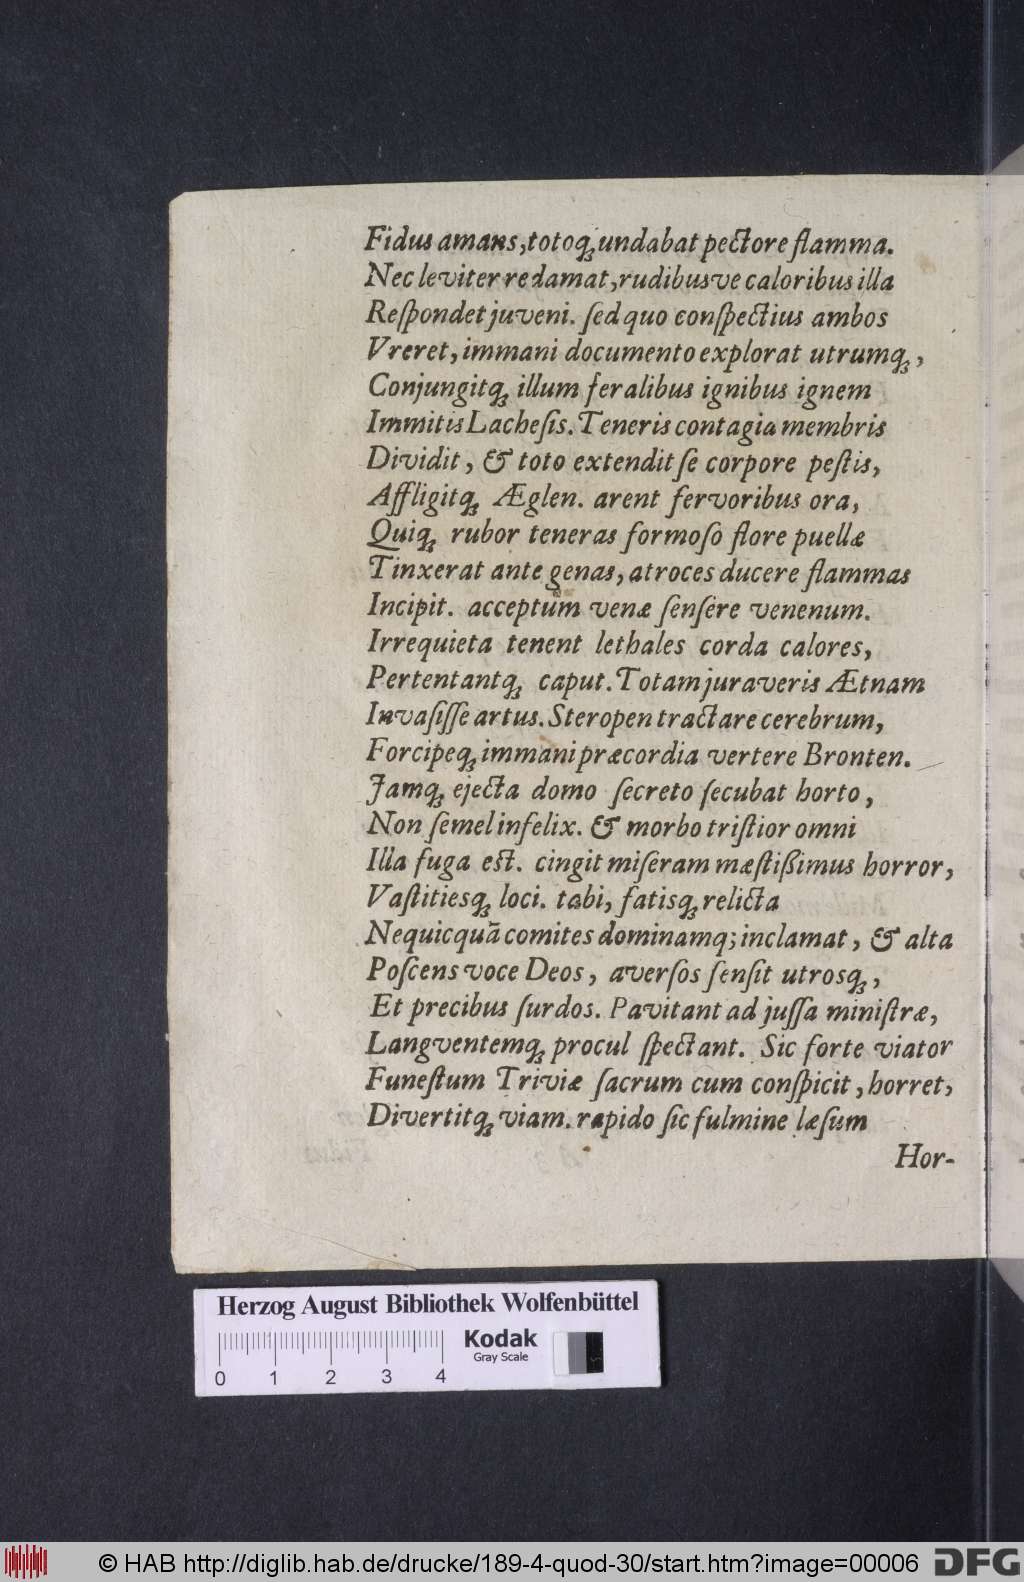 Fidus amans, totoq́ꝫ undabat pectore flamma.
Nec leviter redamat, rudibusve caloribus illa
Reſpondet juveni. ſed quo conſpectius ambos
Vreret, immani documento explorat utrumqꝫ,
Conjungitqꝫ illum feralibus ignibus ignem
Immitis Lacheſis. Teneris contagia membris
Dividit, & toto extendit ſe corpore peſtis,
Affligitqꝫ Æglen. arent fervoribus ora,
Quiqꝫ rubor teneras formoſo flore puellæ
Tinxerat ante genas, atroces ducere flammas
Incipit. acceptum venæ ſenſère venenum.
Irrequieta tenent lethales corda calores,
Pertentantqꝫ caput. Totam juraveris Ætnam
Invaſiſſe artus. Steropen tractare cerebrum,
Forcipeqꝫ immani præcordia vertere Bronten.
Jamqꝫ ejecta domo ſecreto ſecubat horto,
Non ſemel infelix. & morbo triſtior omni
Illa fuga est. cingit miſeram mæſtißimus horror,
Vaſtitiesqꝫ loci. tabi, fatisqꝫ relicta
Nequicquã comites dominamq; inclamat, & alta
Poſcens voce Deos, averſos ſenſit utrosqꝫ,
Et precibus ſurdos. Pavitant ad juſſa miniſtræ,
Langventemqꝫ procul ſpectant. Sic forte viator
Funeſtum Triviæ ſacrum cum conſpicit, horret,
Divertitqꝫ viam. rapido ſic fulmine læſum
Hor-
Herzog August Bibliothek Wolfenbüttel
Kodak
Gray Scale
0 1 2 3 4
© HAB http://diglib.hab.de/drucke/189-4-quod-30/start.htm?image=00006
DFG